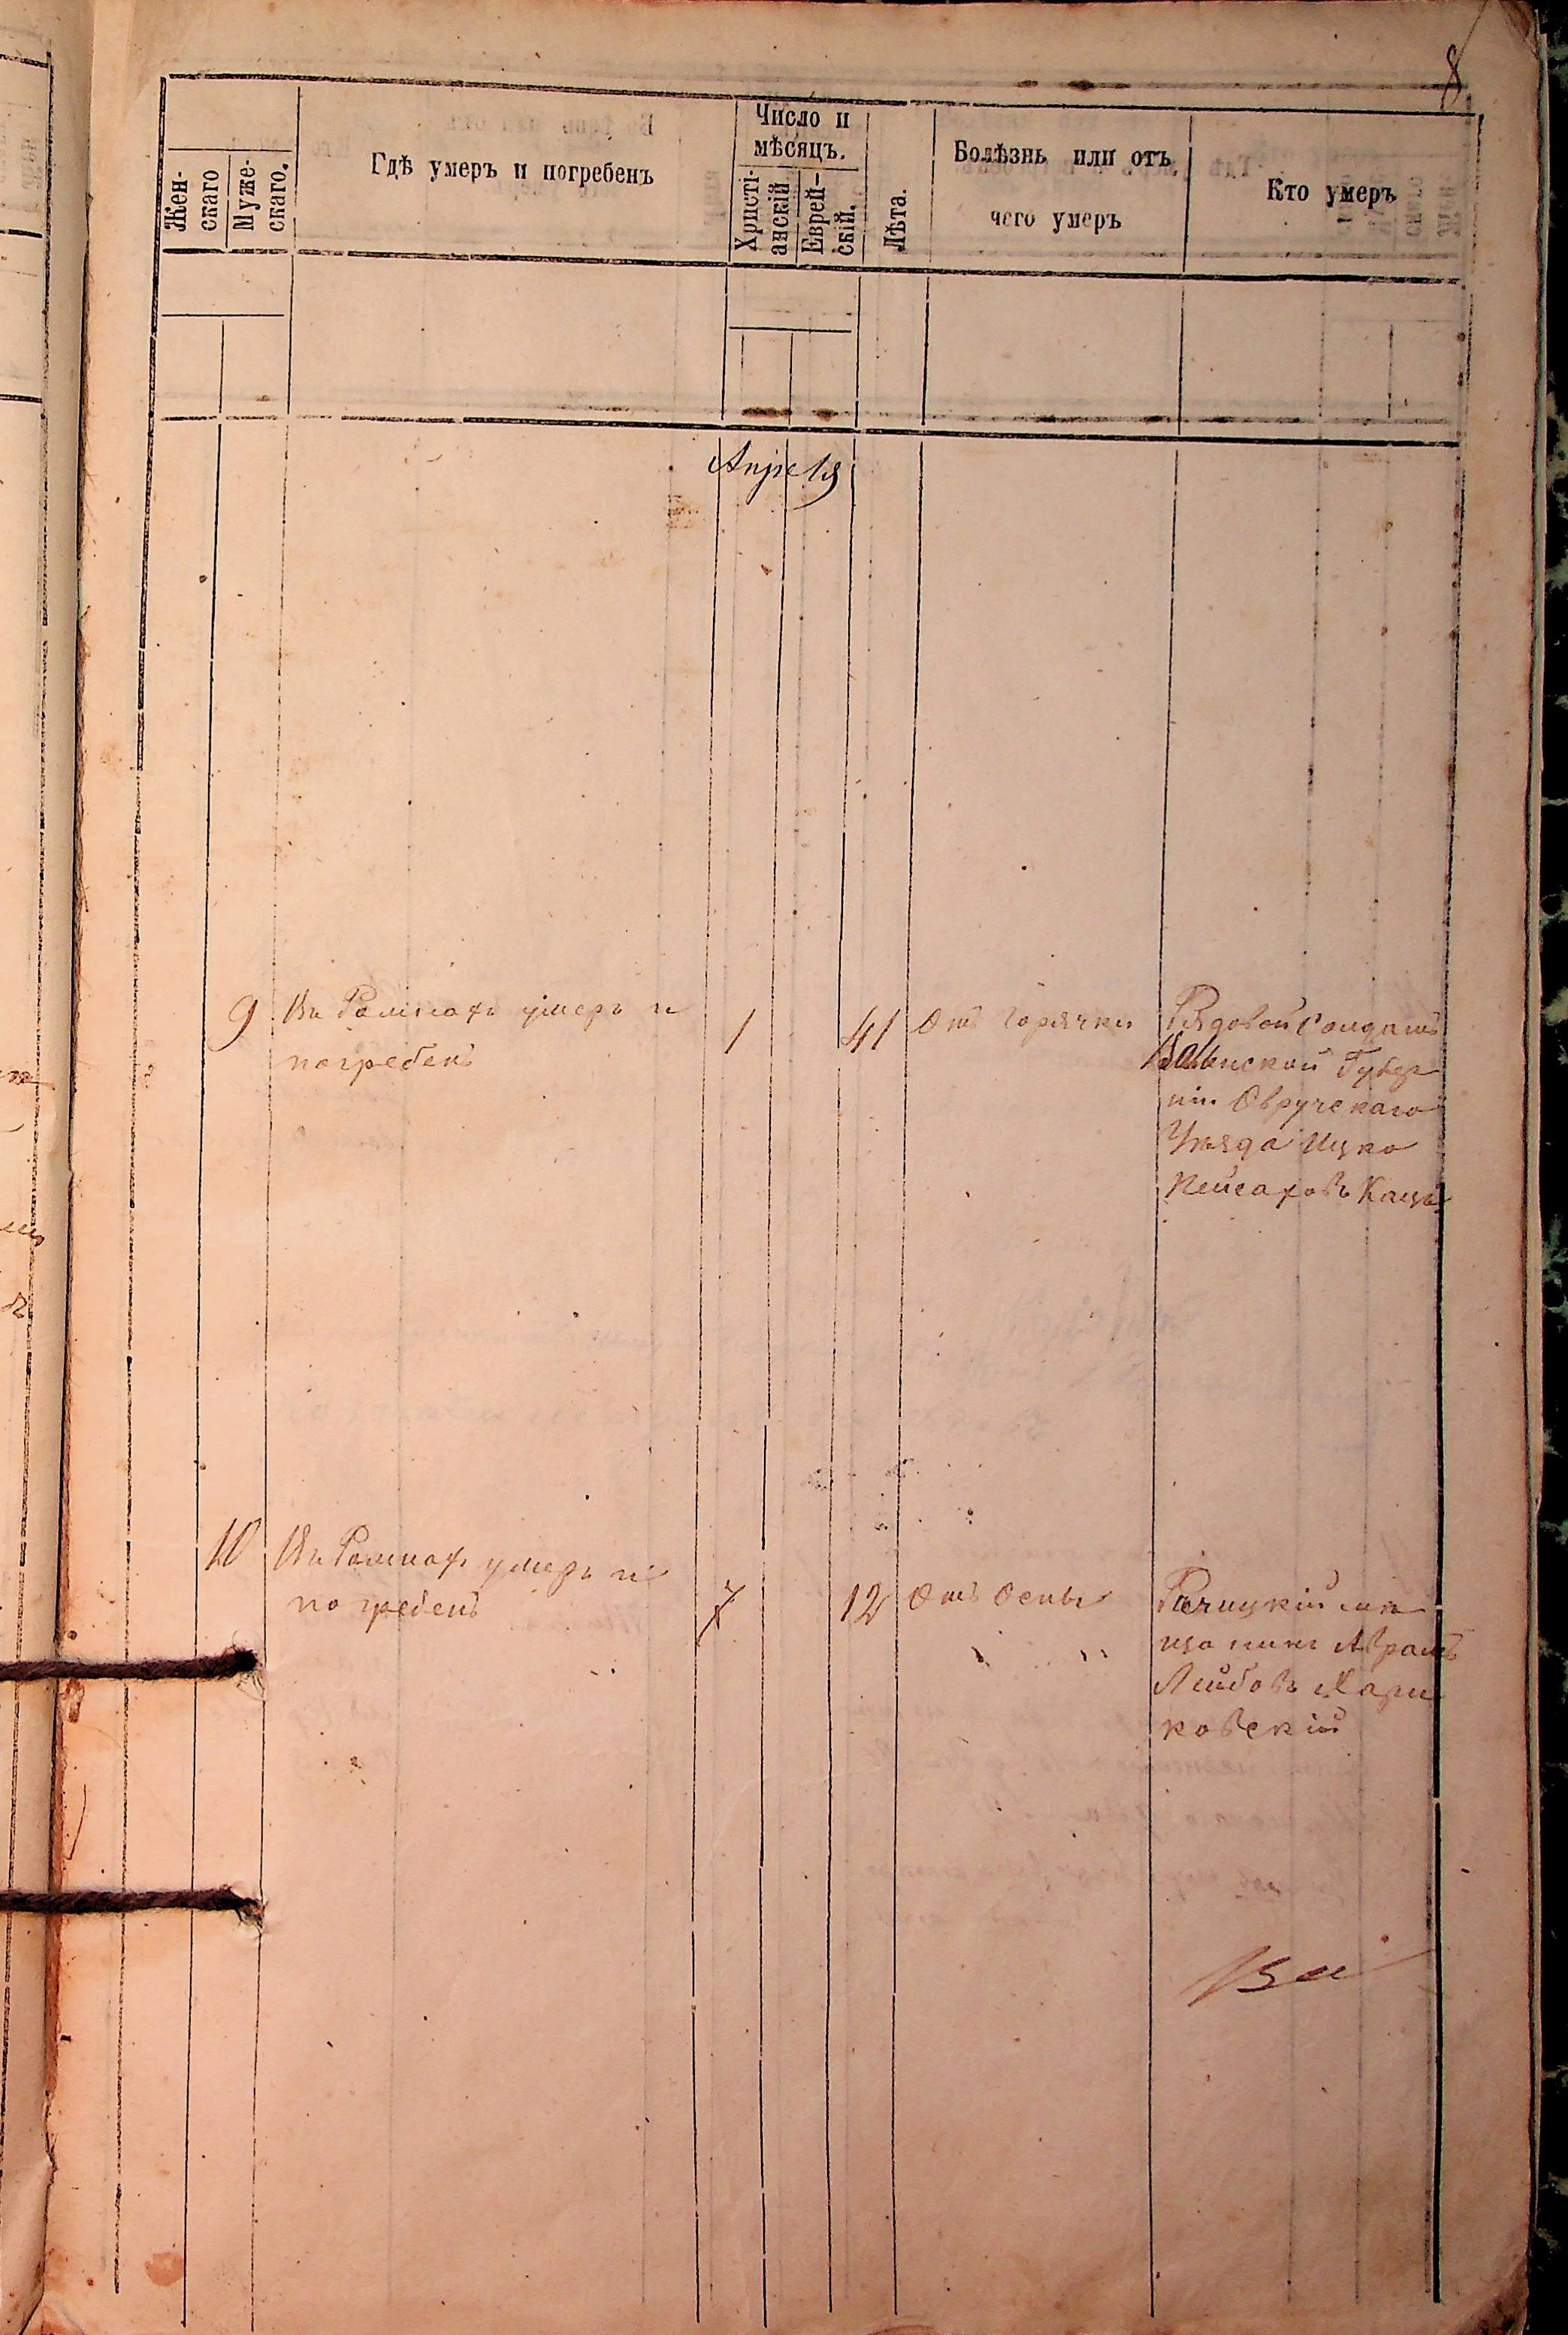 8
Жен-
скаго
Муже-
скаго.
Гдѣ умеръ и погребенъ
Число и
мѣсяцъ.
Христі-
анскій
Еврей-
скій.
Лѣта.
Болѣзнь или отъ
чего умеръ
Кто умеръ
Апреля
9
Въ Ромнахъ умеръ и
погребенъ
1
41
Отъ Горячки
Рядовой Солдатъ
Волынской Губер
ніи Овручскаго
Уѣзда Ицко
Пейсаховъ Кацъ
10
Въ Ромнахъ умеръ и
погребенъ
7
12
Отъ Оспы
Рѣчицкій мѣ
щанинъ Абрамъ
Лейбовъ
ковскій